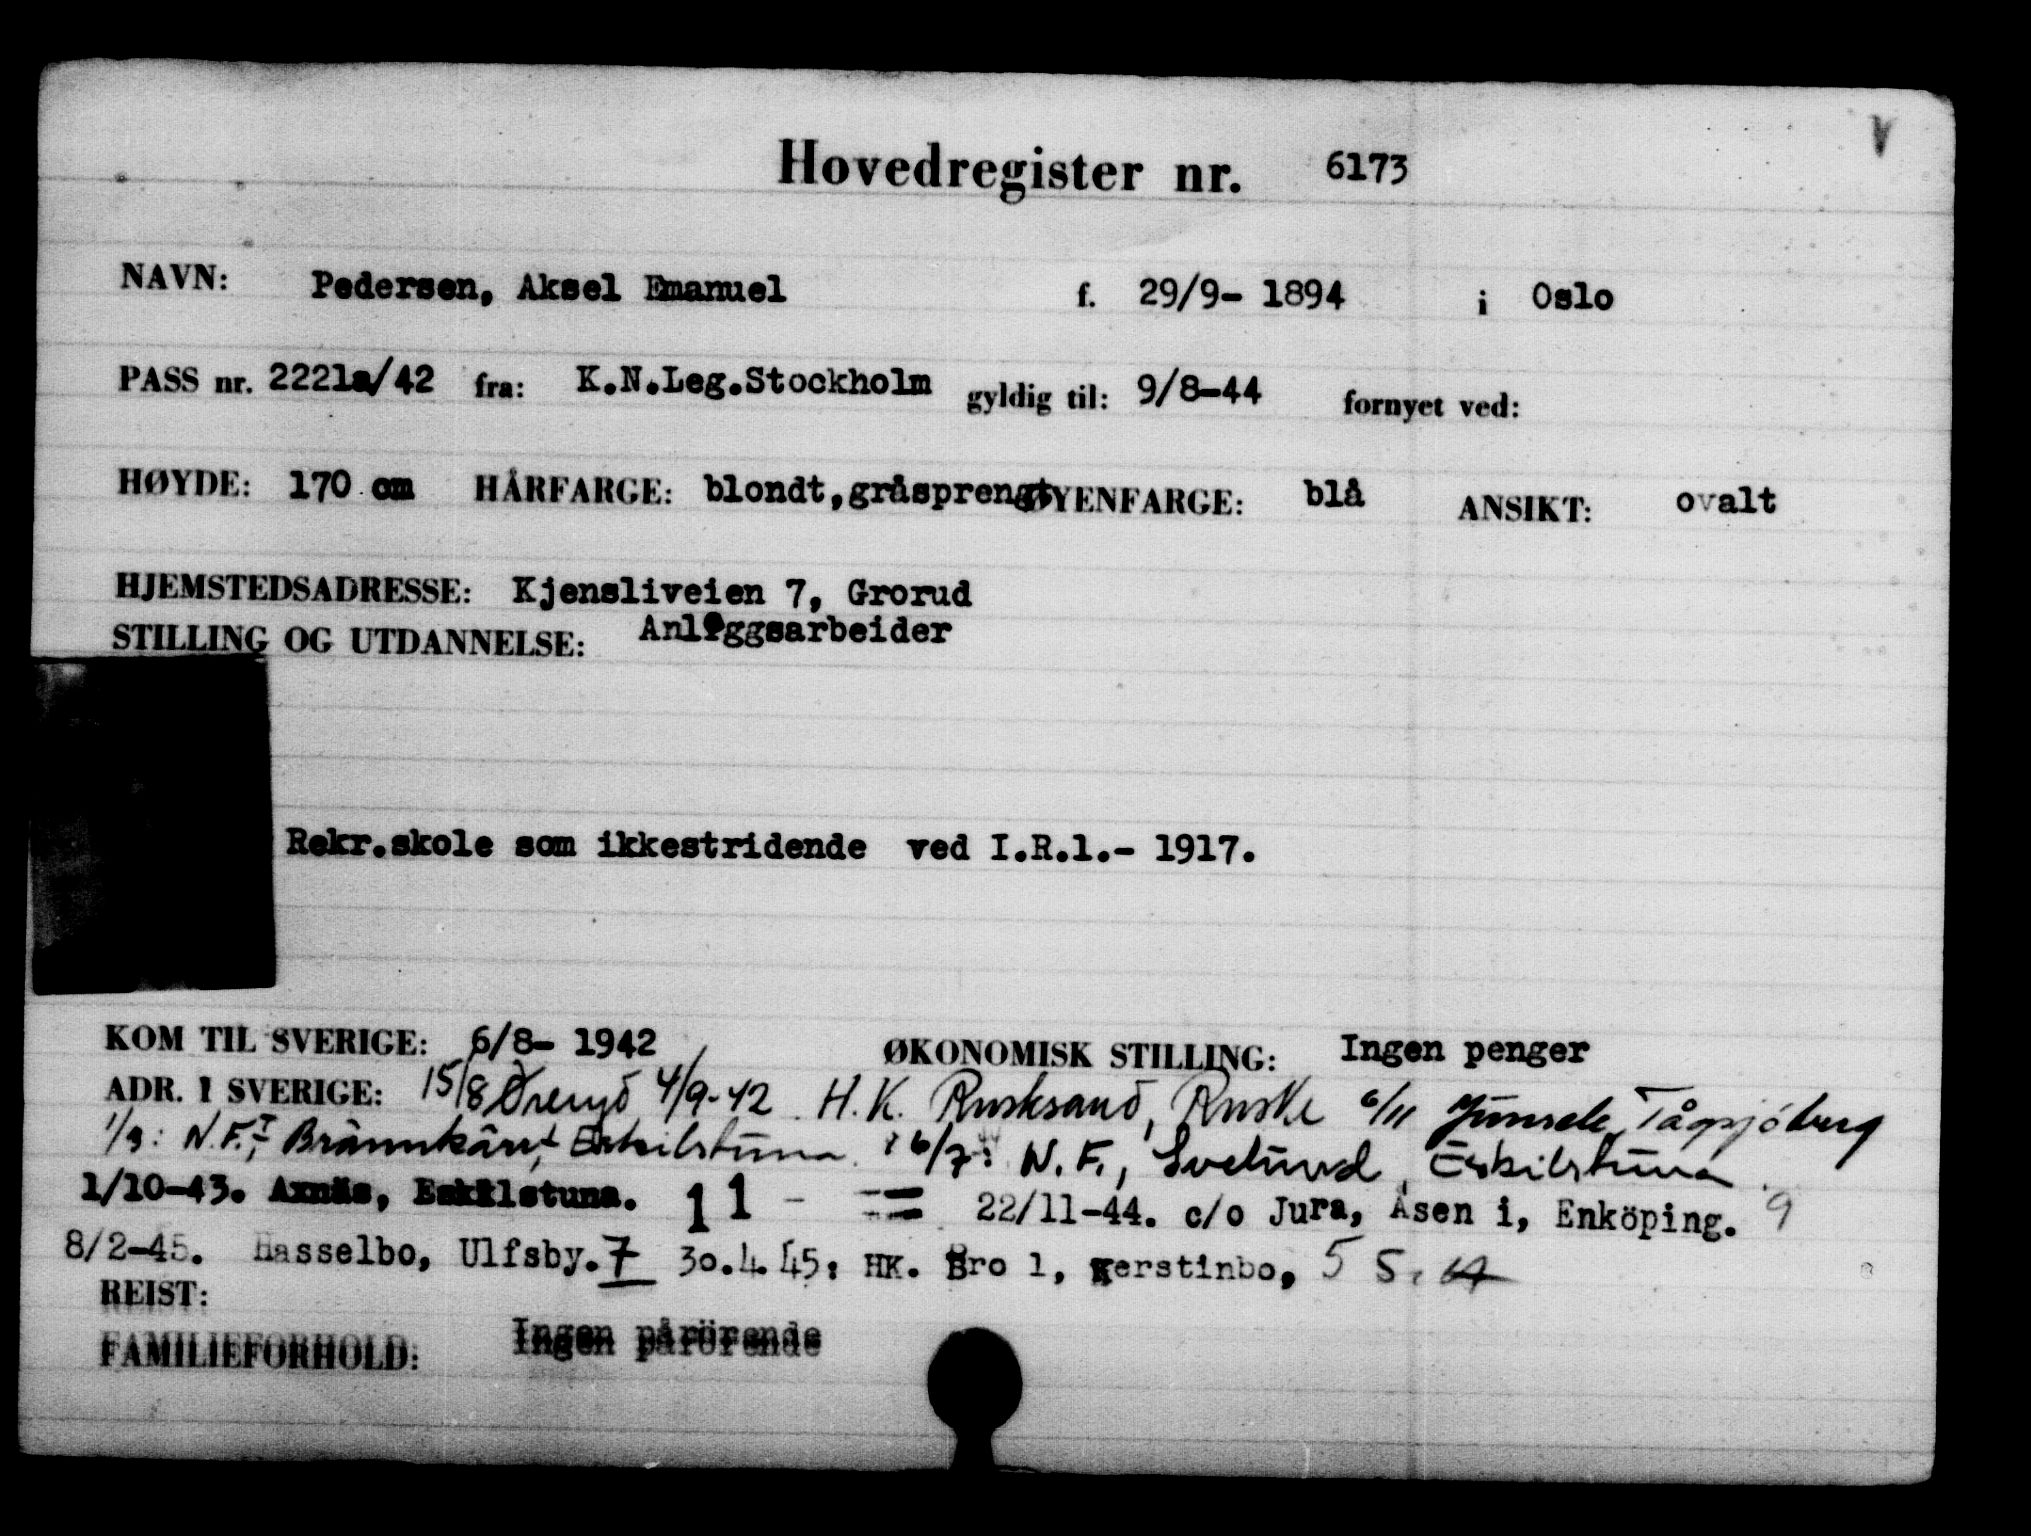 V
Hovedregister nr. 6173
NAVN: Pedersen, Aksel Emanuel f. 29/9- 1894 i Oslo
PASS nr. 2221a/42 fra: K.N.Leg.Stockholm gyldig til: 9/8-44 fornyet ved:
HØYDE: 170 cm HÅRFARGE: blondt,gråsprengt ØYENFARGE: blå ANSIKT: ovalt
HJEMSTEDSADRESSE: Kjensliveien 7, Grorud
STILLING OG UTDANNELSE: Anleggsarbeider
Rekr.skole som ikkestridende ved I.R.1.- 1917.
KOM TIL SVERIGE: 6/8- 1942 ØKONOMISK STILLING: Ingen penger
ADR. I SVERIGE: 15/8 Öreryd 4/9-42 H.K. Rusksand, Ruske 6/11 Junsele, Tågsjöberg
1/3: N.F., Brännkärr, Eskilstuna. 16/7: N.F., Svelund, Eskilstuna.
1/10-43. Axnäs, Eskilstuna. 11 - = 22/11-44. c/o Jura, Åsen i, Enköping. 9
8/2-45. Hasselbo, Ulfsby. 7 30.4.45: HK. Bro 1, Kerstinbo, 5 5.
REIST:
FAMILIEFORHOLD: Ingen pårörende